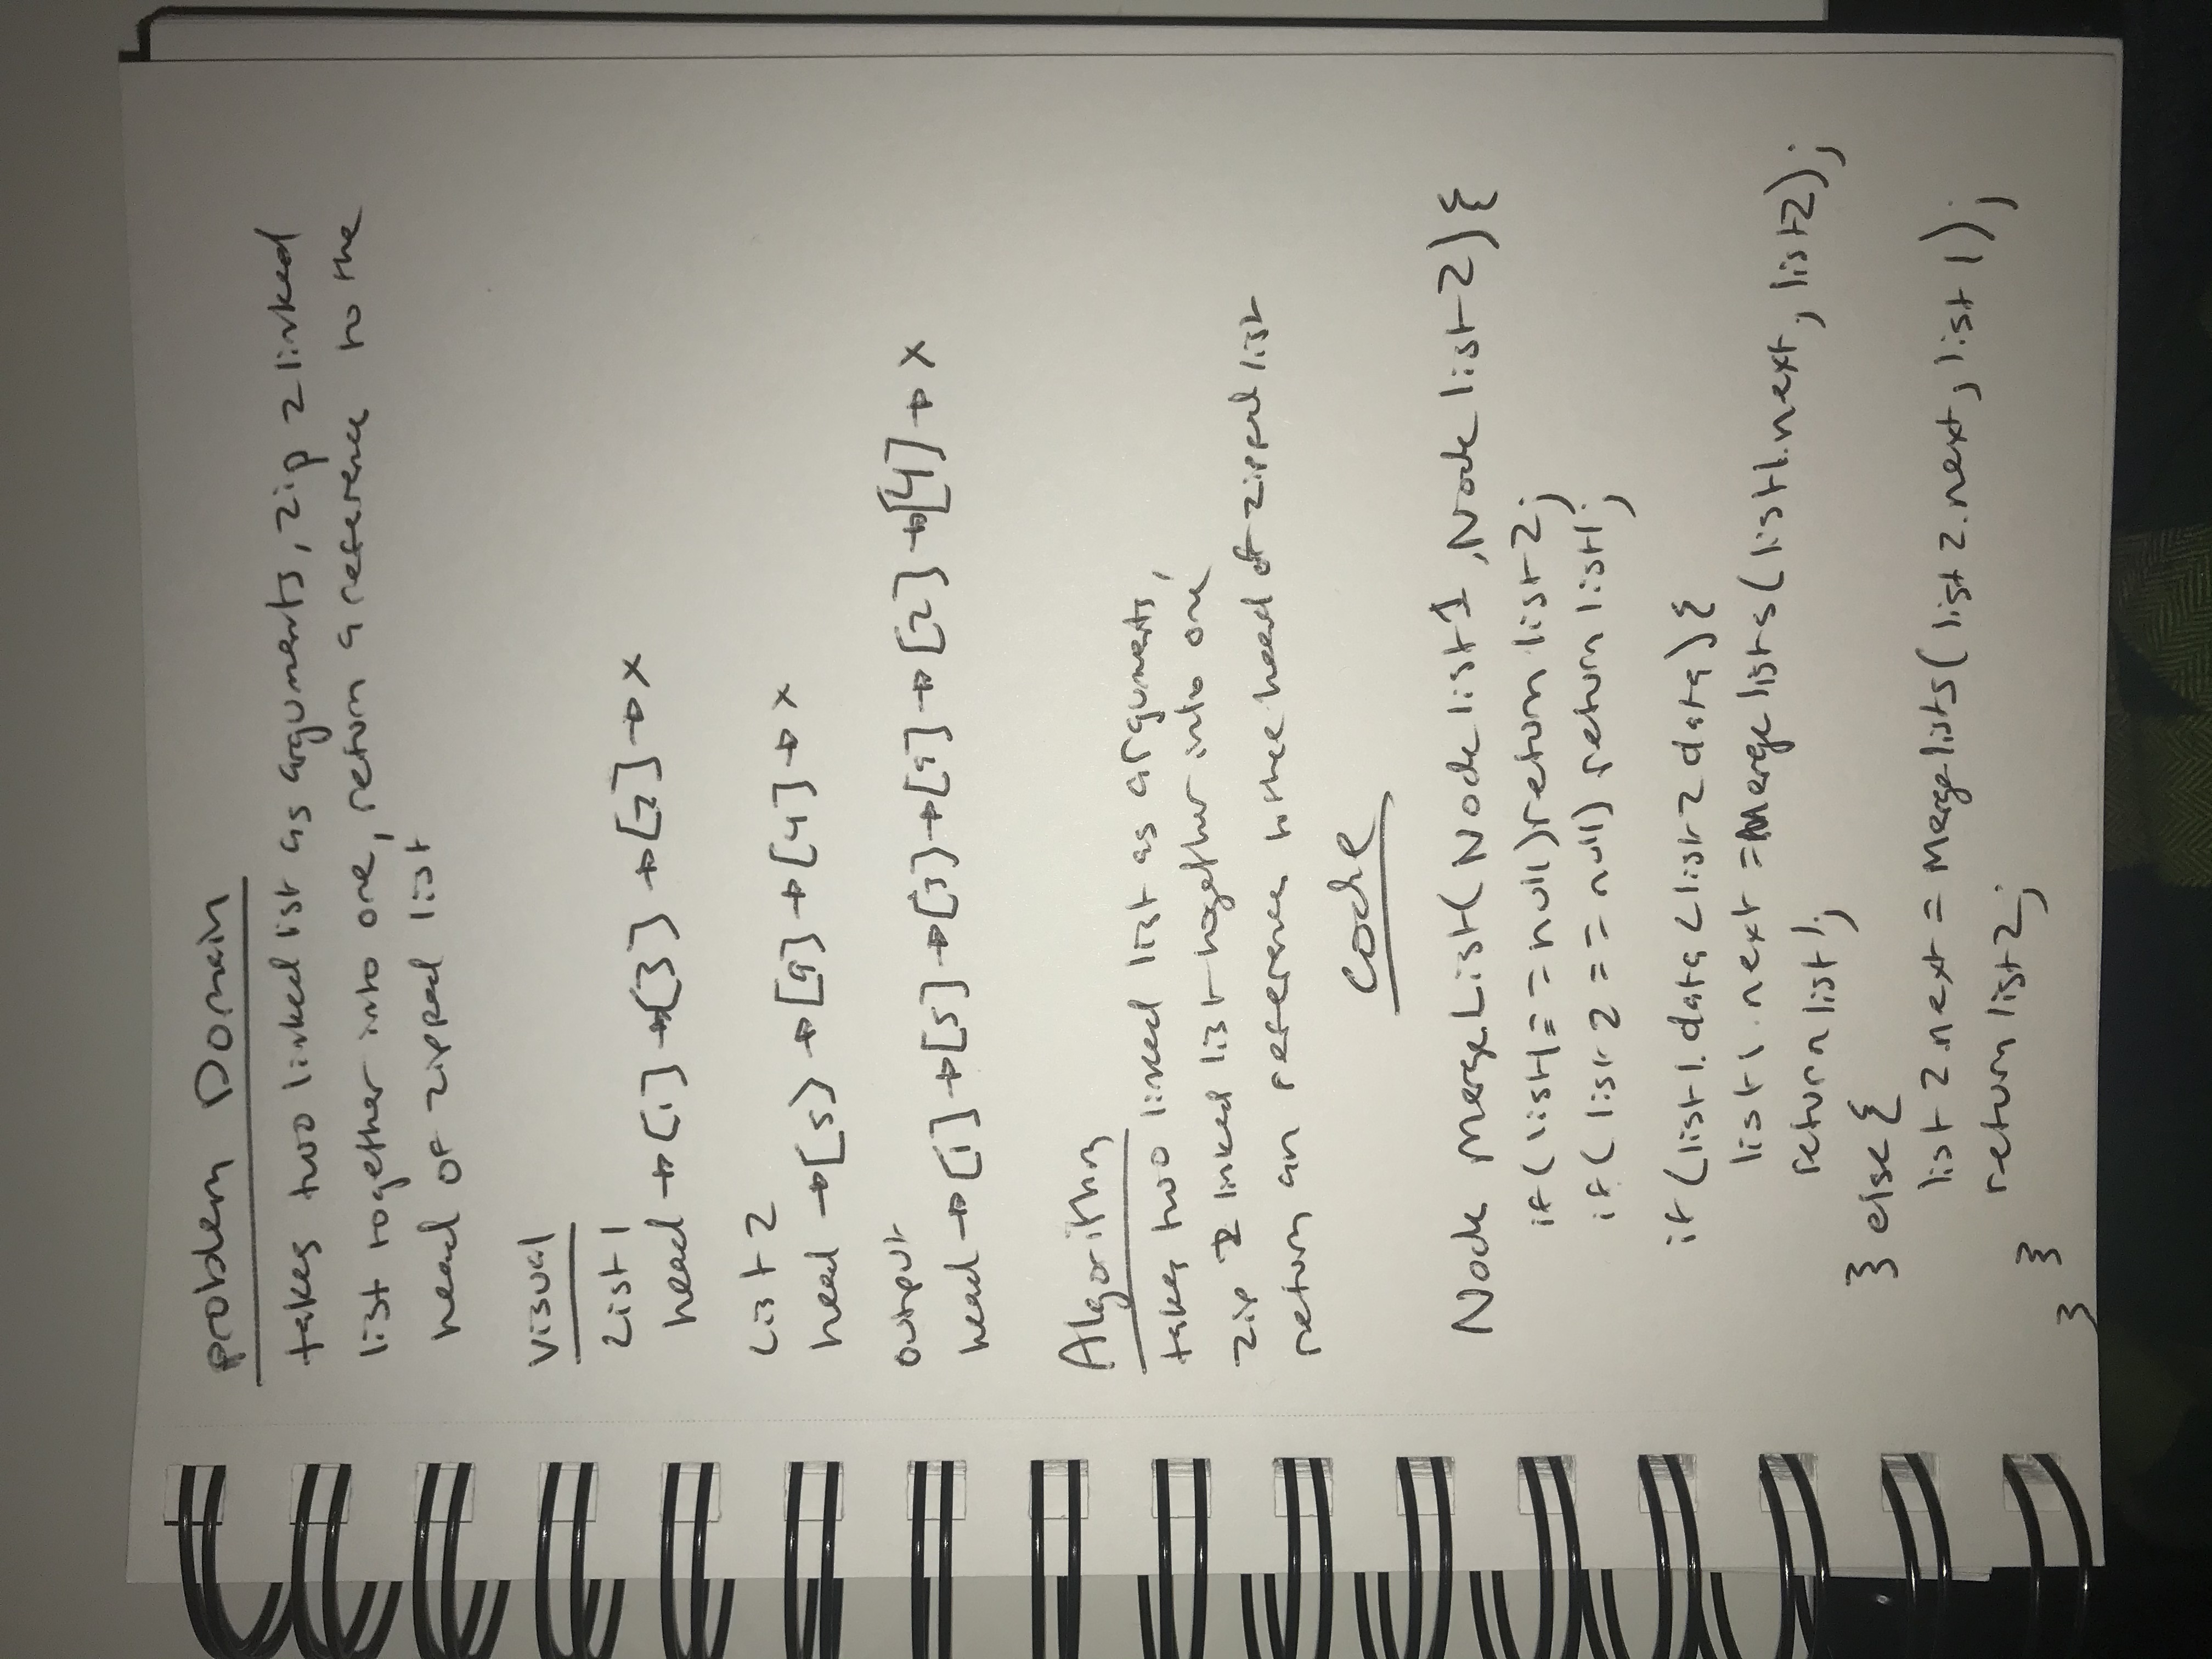 problem Domain
takes two linked list as arguments, zip 2 linked
list together into one, return a reference to the
head of zipped list
Visual
List 1
head → [1] → [3] → [2] → x
List 2
head → [5] → [9] → [4] → x
output
head → [1] → [5] → [3] → [9] → [2] → [4] → x
Algorithm
takes two linked list as arguments,
zip 2 linked list together into one
return an reference to thee head of zipped list
code
Node mergeList(Node list1, Node list2){
if(list1==null)return list2;
if(list2==null) return list1;
if(list1.data<list2data){
list1.next=Mergelists(list1.next, list2);
return list1;
} else {
list2.next = Mergelists(list2.next, list1);
return list2;
}
}